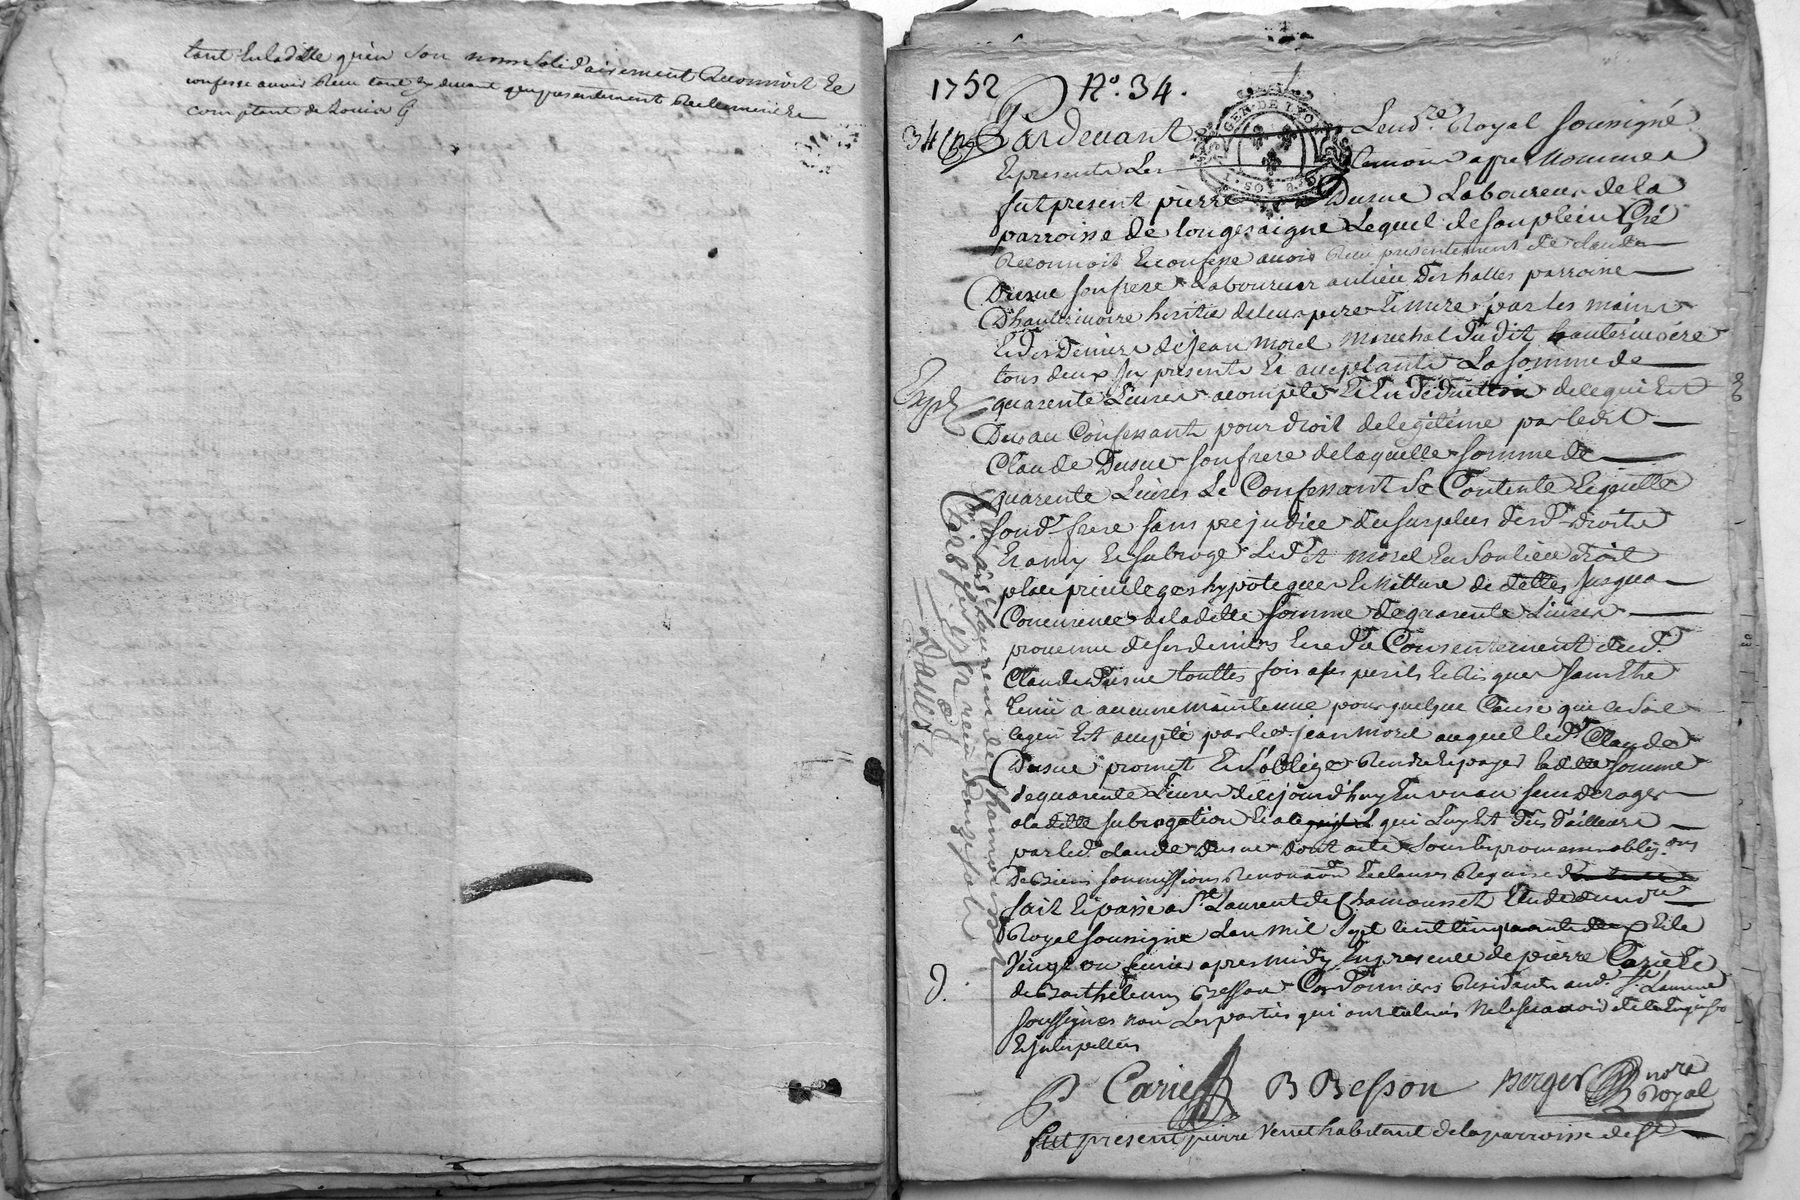 tant en ladtte qu'en son nom solidairement Reconnoit Et
confesse auoir Receu tant cy deuant que presentement Reelement En
comptant de Louis
1752 No. 34.
34 Pardeuant Le nore. Royal soussigné
Et presents Les temoins apres Nommés
fut present pierre Dusue Laboureur de la
parroisse de Longesaigne Lequel de son plein Gré
Reconnoit Et confesse auoir Receu presentement de claude
Dusue son frere Laboureur au lieu Des halles parroisse
D'hauterivoire heritier de leur pere Et mere par les mains
Et des Deniers de jean morel marechal Du dit hauterivoire
tous deux Icy presents Et acceptants La somme de
quarente Liures acompte Et En Deduction de ce qui Est
Deu au Confessant pour droit de legitime par ledit
Claude Dusue son frere de laquelle somme de
quarente Liures Le Confessant se Contente Et quitte
sond. frere sans prejudice du surplus desd. Droits
Et a mis Et subrogé Led. Sr morel En son lieu droit
place priuileges hypoteques Et nature de dettes Jusqua
Concurrence de laditte somme de quarente Liures
prouenue de ses deniers Et ce Du Consentement dud.
Claude Dusue touttes fois a ses perils Et risques sans Etre
tenu a aucune maintenue pour quelque Cause que ce soit
ce qui Est accepté par led. jean morel auquel led. Claude
Dusue promet Et s'oblige Rendre Et payer laditte somme
de quarente Liures de ce jourd'huy En un an sans deroger
a laditte subrogation Et a ce qui Luy Est Deu d'ailleurs
par led. claude Dusue Dont acte sous les promesses obligons
De Biens soumissions Renonaons Et clauses Requises
fait Et passé a St. Laurent de Chamousset Etude dud nore
Royal soussigné L'an mil sept cent cinquante deux Et le
Vingt un feurier apres midy En presence de pierre Carie Et
de Barthelemy Besson Cordonniers Residants aud. St. Laurent
soussignés non Les parties qui ont declaré ne le sçauoir de ce Enquis
Et Interpellés
P Carie B Besson Berger nore
Royal
fut present pierre Venet habitant de la parroisse de St
Expd
Con.llé a St Laurent de Chamousset